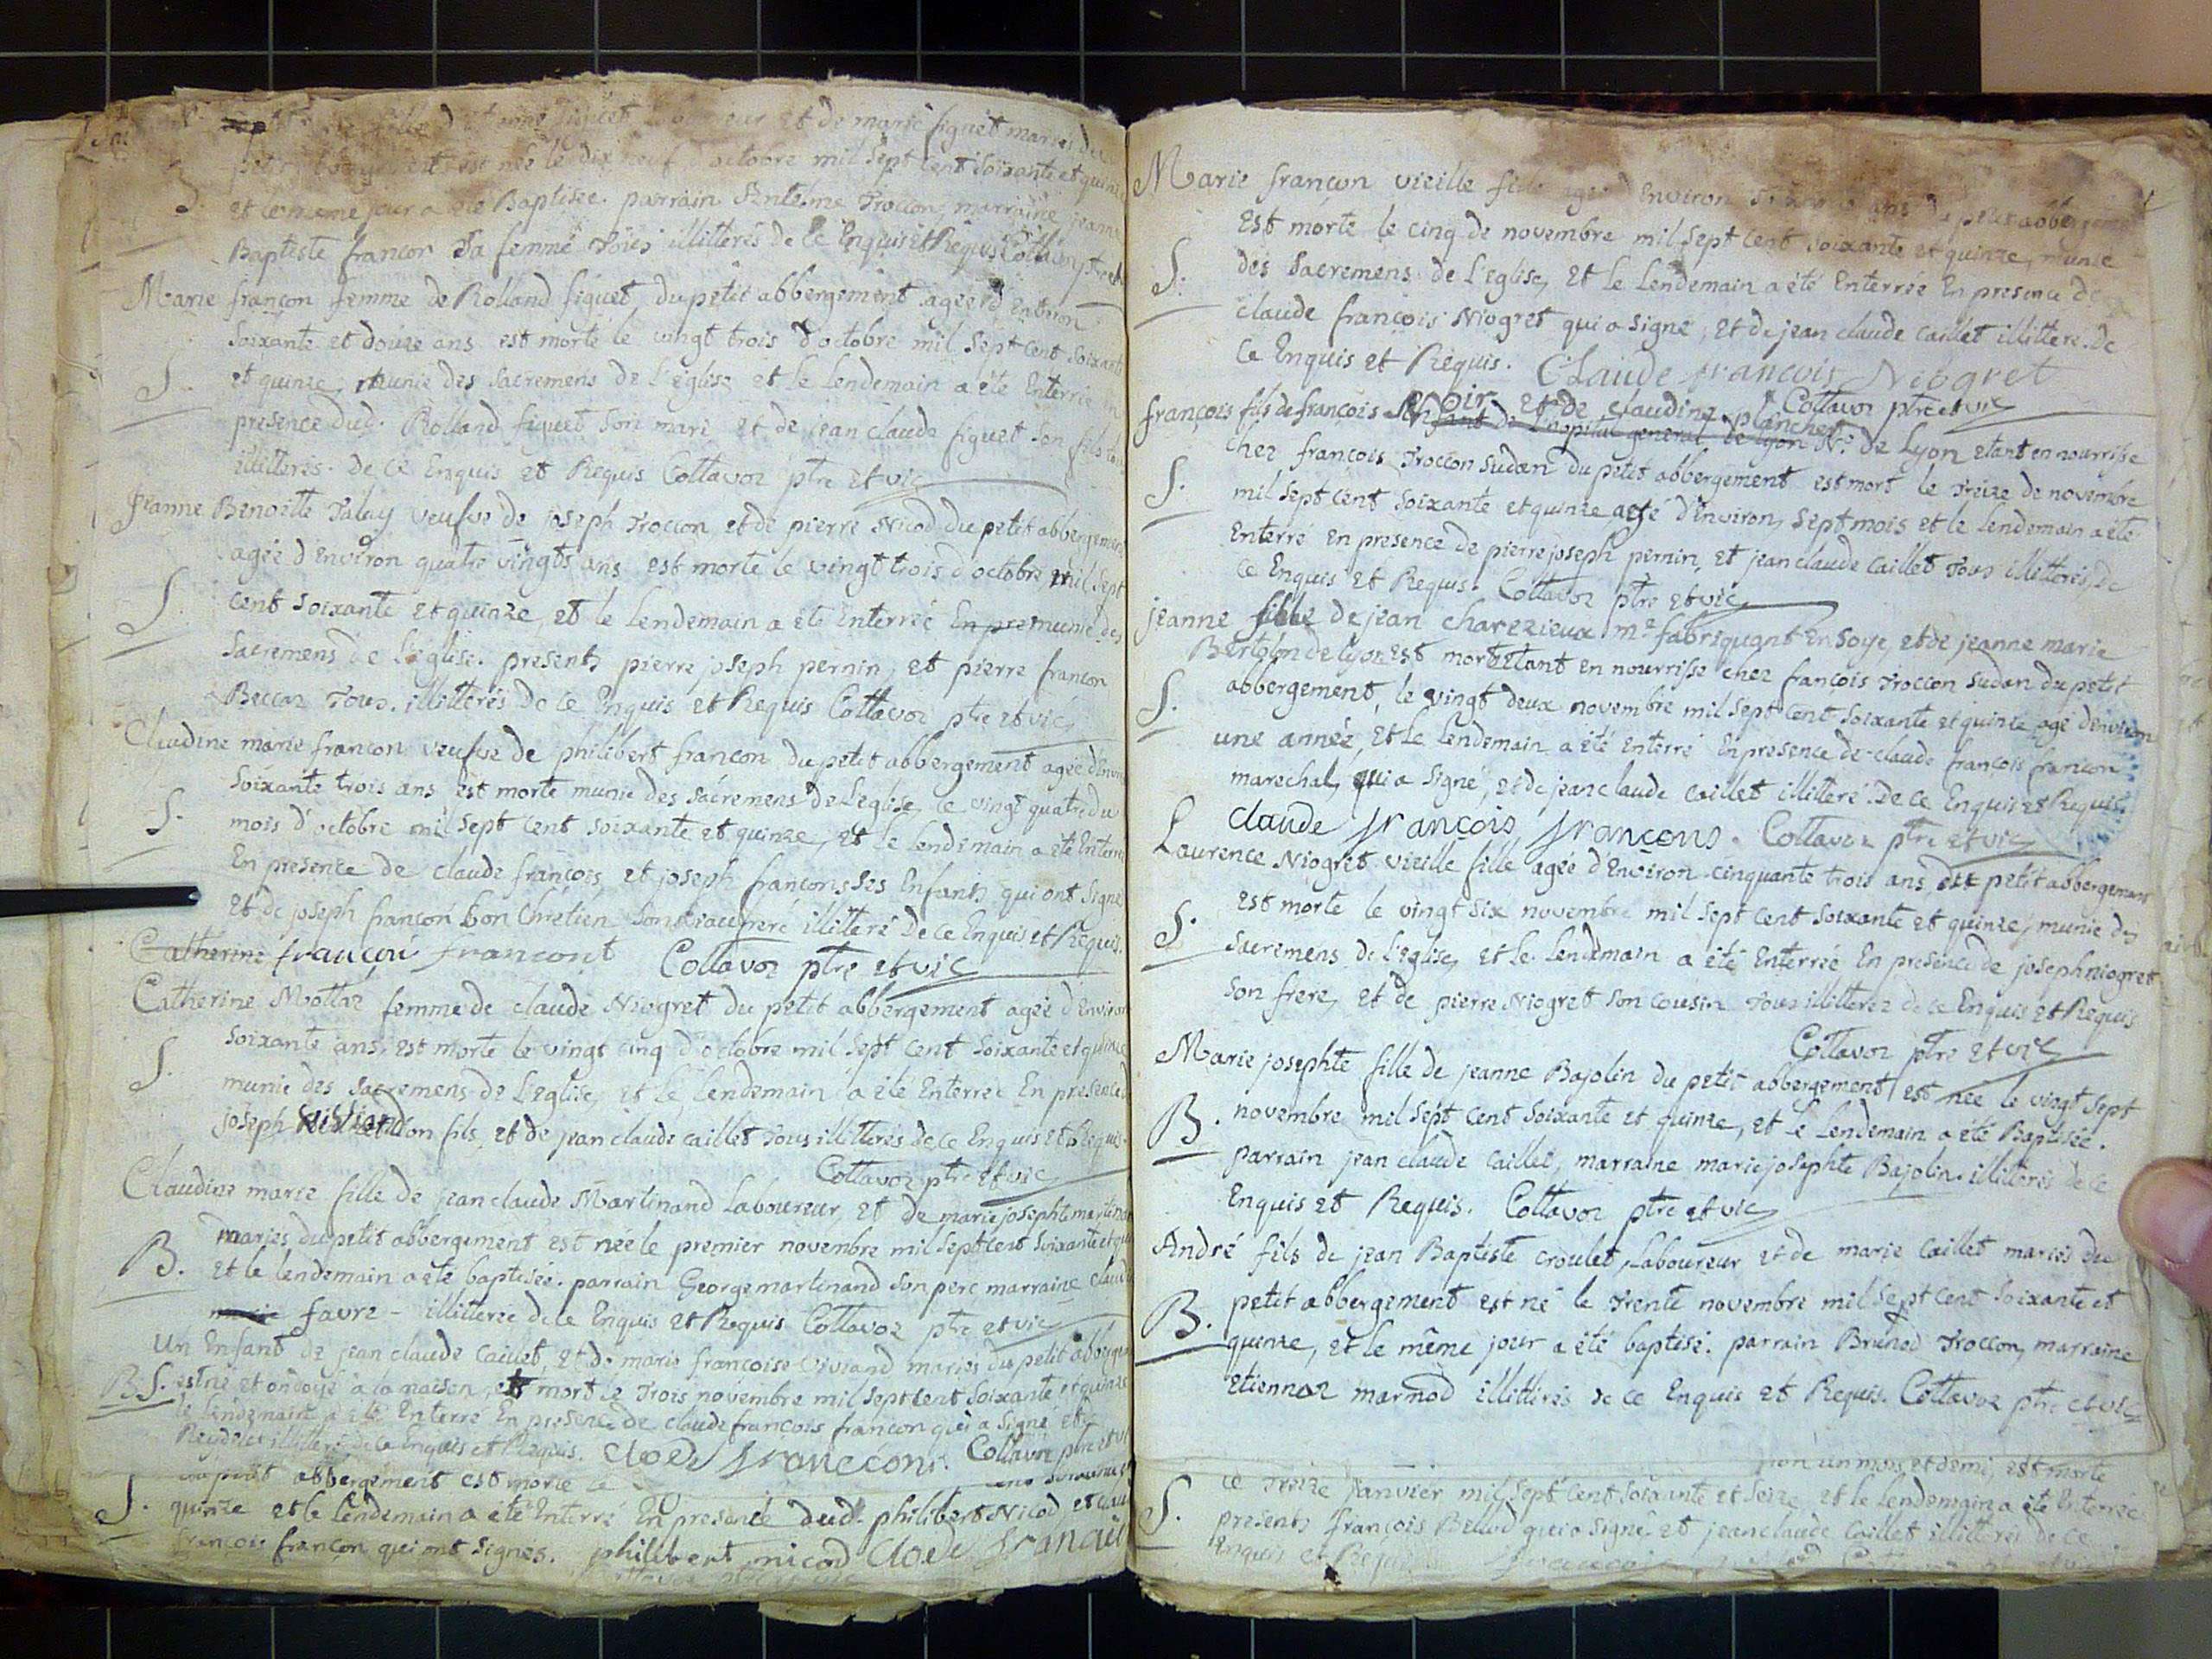 et de marie figuet mariés du
est née le dix neuf d'octobre mil sept cent soixante et quinze
B. et le meme jour a été Baptisée. parrain Antelme Troccon, marraine jeanne
Baptiste francon sa femme Tous illitterés de ce Enquis et Requis Collavoz ptre et vic
Marie françon femme de Rolland figuet, du petit abbergement agée d'environ
soixante et douze ans est morte le vingt trois d'octobre mil sept cent soixante
S. et quinze, munie des sacremens de l'église et le lendemain a été Enterrée en
presence dud. Rolland figuet son mari et de jean claude figuet son fils
illitterés. de ce Enquis et Requis Collavoz ptre et vic
Jeanne Benoitte Talay veufve de joseph Troccon et de pierre Nicod du petit abbergement
agée d'Environ quatre vingts ans est morte le vingt trois d'octobre, mil sept
S. cent soixante et quinze, et le lendemain a été Enterrée En pre munie des
sacremens de l'église. presents pierre joseph pernin, et pierre francon
Beccaz Tous. illitterés de ce Enquis et Requis Collavoz ptre et vic
Claudine marie francon veufve de philibert francon du petit abbergement agée d'Environ
soixante trois ans est morte munie des sacremens de l'eglise, le vingt quatre du
S. mois d'octobre mil sept cent soixante et quinze, et le lendemain a été Enterrée
En presence de claude françois, et joseph francons ses Enfants qui ont signé
et de joseph françon bon Chrétien son beaufrere illitteré de ce Enquis et Requis.
Catherine françoi francont Collavoz ptre et vic
Catherine Mottaz femme de claude Niogret du petit abbergement agée d'Environ
soixante ans, est morte le vingt cinq d'octobre mil sept cent soixante et quinze
S. munie des sacremens de l'eglise, et le lendemain a été Enterrée En presence de
joseph son fils, et de jean claude caillet Tous illitterés de ce Enquis et Requis.
Collavoz ptre et vic
Claudine marie fille de jean claude Martinand Laboureur, et de marie josephte martinand
mariés du petit abbergement est née le premier novembre mil sept cent soixante et quinze
B. et le lendemain a été baptisée. parrain George martinand son pere marraine claudine
marie favre - illitterée de ce Enquis et Requis Collavoz ptre et vic
Un Enfant de jean claude Caillet, et de marie francoise Viviand mariés du petit abbergement
B. S. est né et ondoyé a la maison, et mort le Trois novembre mil sept cent soixante et quinze
le lendemain a été Enterré En presence de claude francois françon qui a signé et de
illitteré de ce Enquis et Requis. Cloede francçons. Collavoz ptre et vic
du petit abbergement est morte le
S. quinze et le lendemain a été Enterré En presence dud. philibert Nicod, et claude
françois françon qui ont signés. philibert nicod Cloede
Marie françon vieille fille agée d'Environ ans du petit abbergement
est morte le cinq de novembre mil sept cent soixante et quinze, munie
S. des sacremens de l'eglise, et le lendemain a été Enterrée En presence de
claude françois Niogret qui a signé, et de jean claude caillet illitteré. de
ce Enquis et Requis. Claude francois Niogret
Collavoz ptre et vic
françois fils de françois Noir et de claudine planchet
Enfant de l'hopital general de lyon No. de Lyon etant en nourrisse
chez françois Troccon Sudan du petit abbergement est mort le Treize de novembre
S. mil sept cent soixante et quinze agé d'Environ sept mois et le lendemain a été
Enterré En presence de pierre joseph pernin, et jean claude Caillet Tous illitterés, de
ce Enquis et Requis. Collavoz ptre et vic
jeanne fille de jean charezieux md fabriquant En soye, et de jeanne marie
Bertolon de lyon est mort etant en nourrisse chez françois Troccon Sudan du petit
S. abbergement, le vingt deux novembre mil sept cent soixante et quinze agé d'environ
une année, et le lendemain a été enterré En presence de claude françois françon
marechal, qui a signé, et de jean claude caillet illitteré. De ce Enquis et Requis.
claude françois françons. Collavoz ptre et vic
Laurence Niogret vieille fille agée d'Environ cinquante trois ans du petit abbergement
est morte le vingt six novembre mil sept cent soixante et quinze, munie des
S. sacremens de l'eglise, et le lendemain a été Enterrée En presence de joseph niogret
son frere, et de pierre Niogret son cousin Tous illitterez de ce Enquis et Requis
Collavoz ptre et vic
Marie josephte fille de jeanne Bajolin du petit abbergement est née le vingt sept
B. novembre mil sept cent soixante et quinze, et le lendemain a été Baptisée.
parrain jean claude Caillet, marraine marie josephte Bajolin. illitterés de ce
Enquis et Requis. Collavoz ptre et vic
André fils de jean Baptiste croulet, laboureur et de marie Caillet mariés du
petit abbergement est né le Trente novembre mil sept cent soixante et
B. quinze, et le même jour a été baptisé. parrain Brunod Troccon, marraine
etiennaz marmod illitterés de ce Enquis et Requis. Collavoz ptre et vic
un mois et demi, est morte
ce Treize janvier mil sept cent soixante et seize, et le lendemain a été Enterrée
S. presents françois Bellod qui a signé et jean claude Caillet illitterés de ce
Enquis et Requis